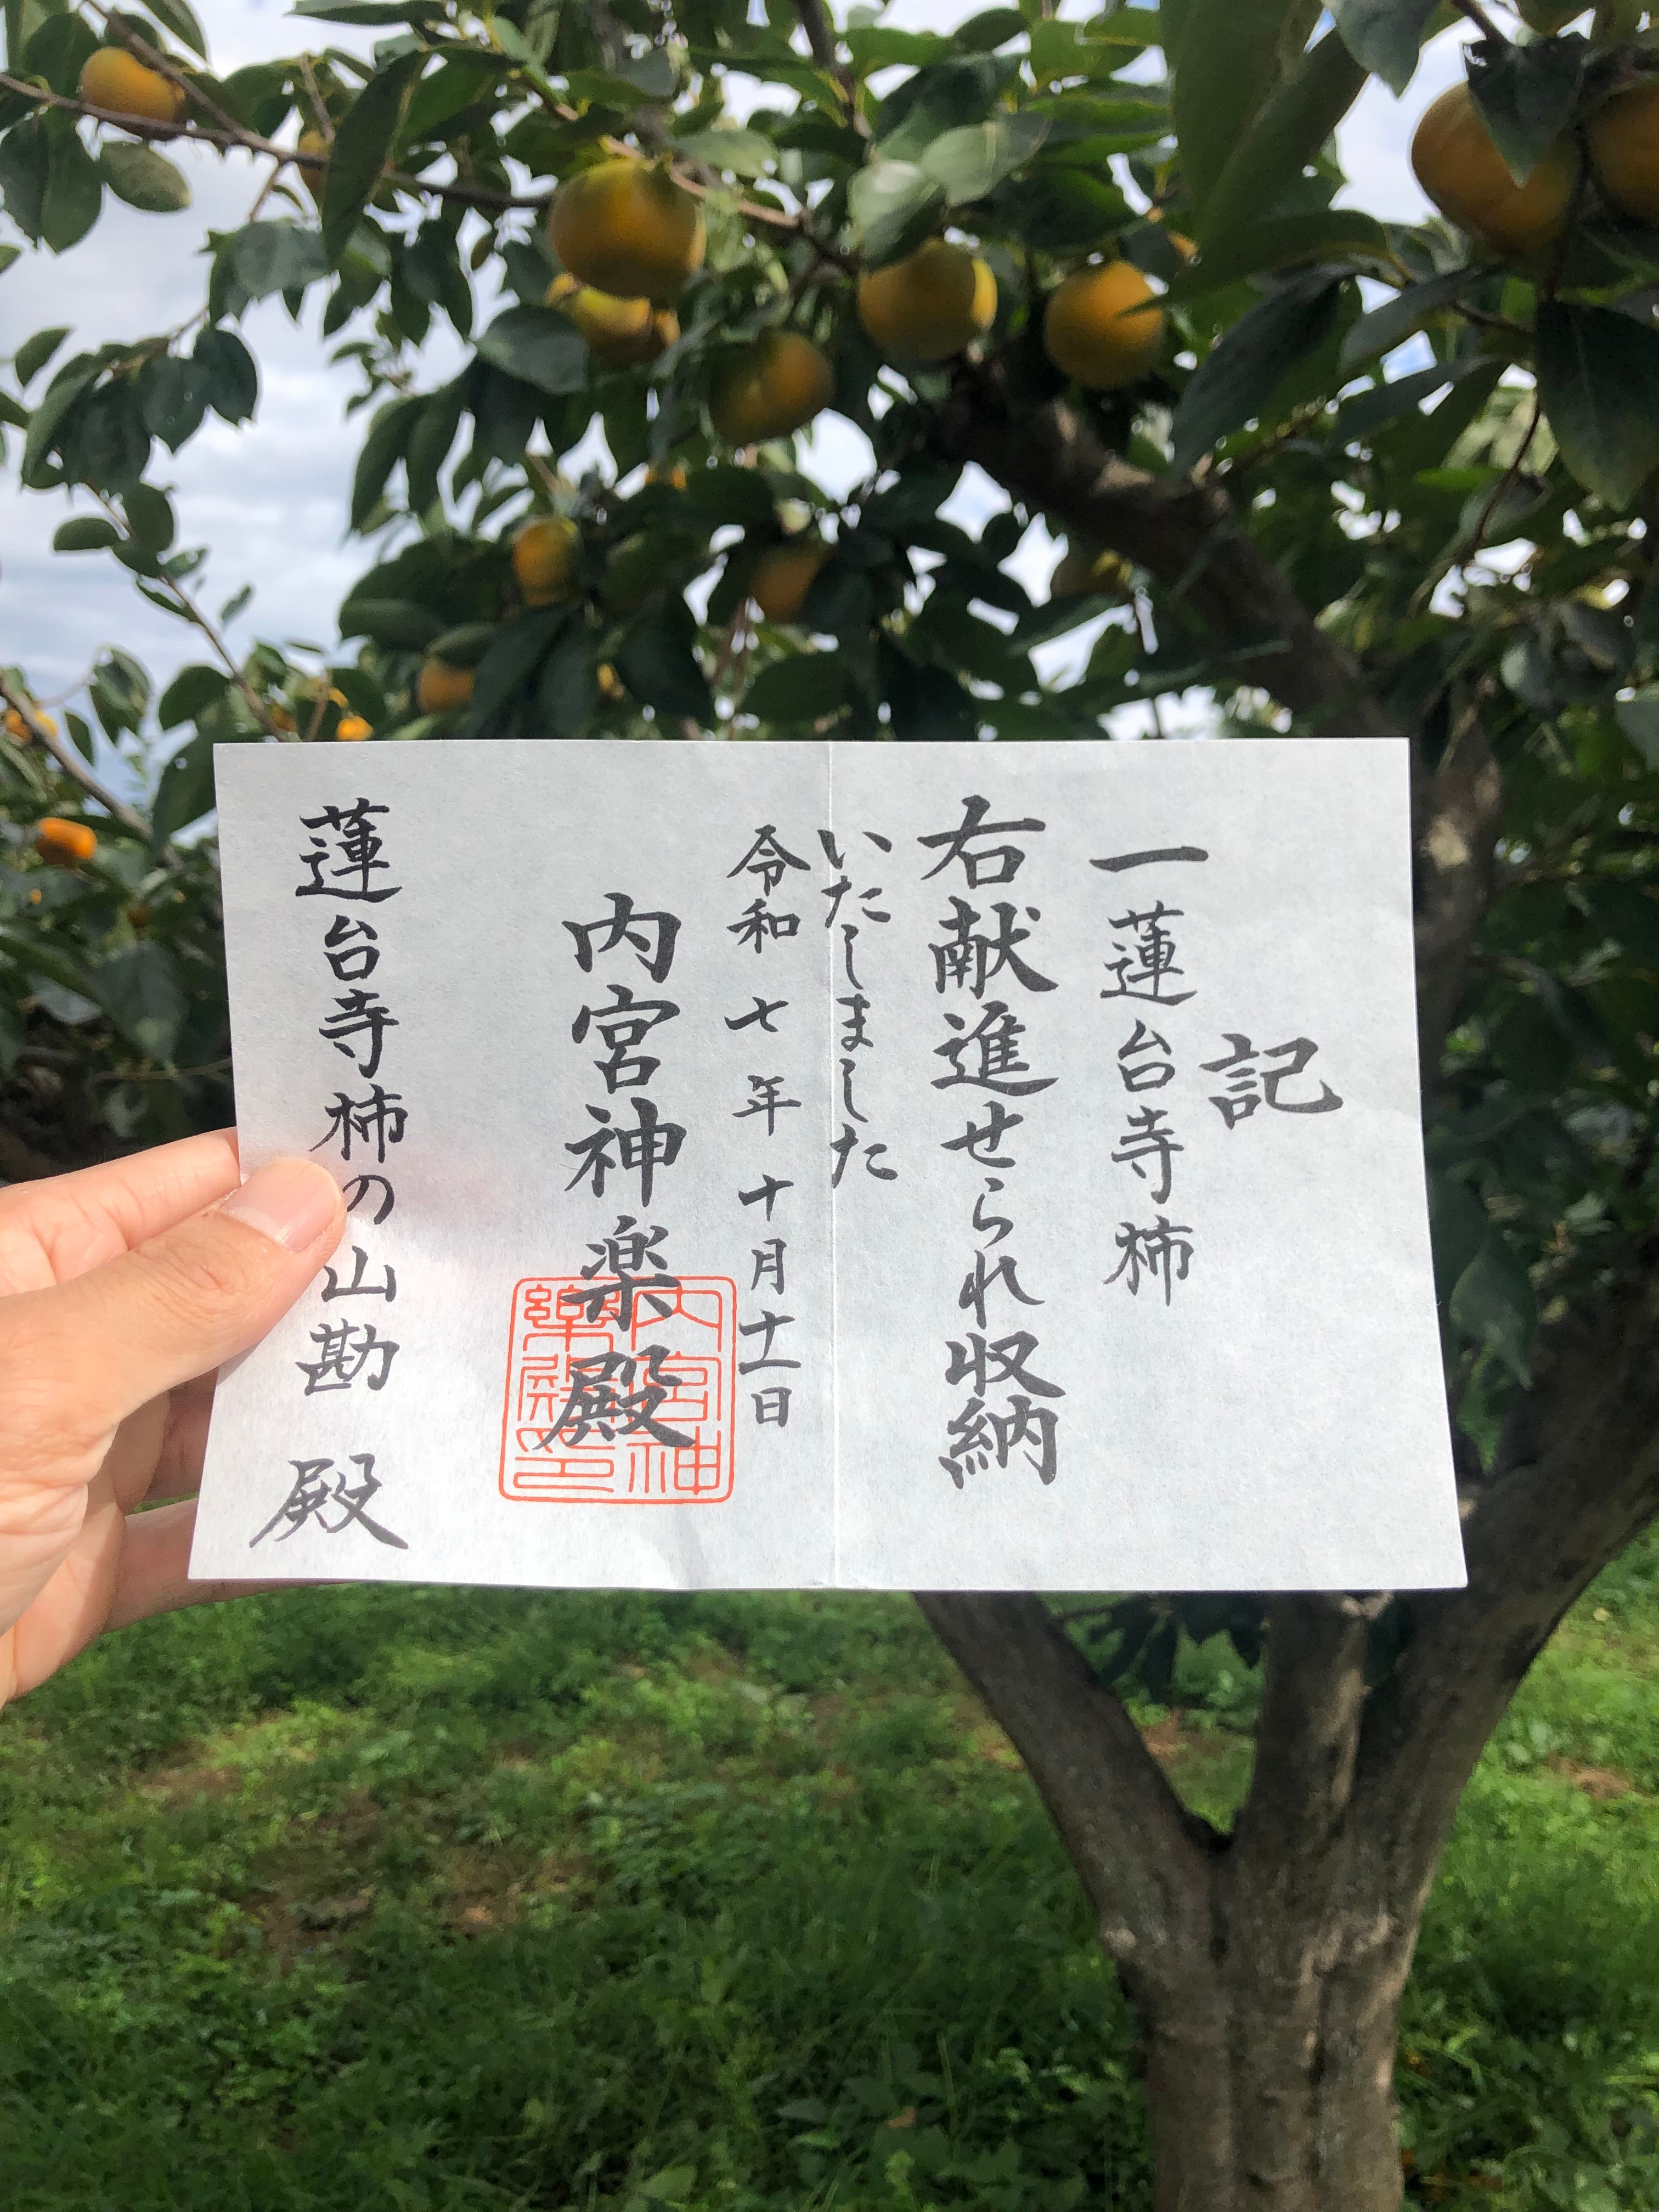 記
一 蓮台寺柿
右献進せられ収納
いたしました
令和 七 年 十月十一日
内宮神楽殿
内宮神楽殿印
蓮台寺柿の山勘 殿